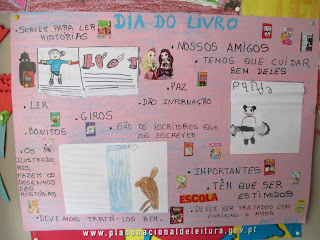 DIA DO LIVRO
• SERVEM PARA LER
HISTÓRIAS
• NOSSOS AMIGOS
• TEMOS QUE CUIDAR
BEM DELES
• PAZ
Panda
• LER
• DÃO INFORMAÇÃO
• GIROS
• BONITOS
• SÃO OS ESCRITORES QUE
OS ESCREVEM
• OS
ILUSTRADO,
RES,
FAZEM OS
DESENHOS
DAS
HISTÓRIAS
• IMPORTANTES
• TÊM QUE SER
ESTIMADOS
ESCOLA
• DEVEM SER TRATADOS COM
CARINHO E AMOR
• DEVEMOS TRATÁ-LOS BEM.
www.planonacionaldeleitura.gov.pt